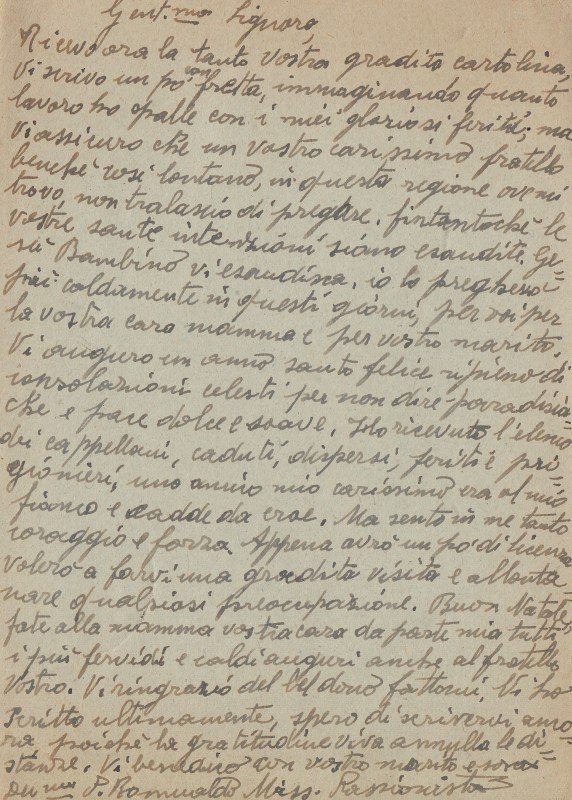 Gent.ma Signora,
Ricevo ora la tanto vostra gradita cartolina,
vi scrivo un pò con fretta, immaginando quanto
lavoro ho spalle con i miei gloriosi feriti; ma
vi assicuro che un vostro carissimo fratello
benchè così lontano, in questa regione ove mi
trovo, non tralascio di pregare. fintantochè le
vostre sante intenzioni siano esaudite. Ge=
sù Bambino vi esaudirà, io lo pregherò
più caldamente in questi giorni, per voi per
la vostra cara mamma e per vostro marito.
Vi auguro un anno santo felice ripieno di
consolazioni celesti per non dire paradisia=
che e pace dolce e soave. Ho ricevuto l'elenco
dei cappellani, caduti, dispersi, feriti e pri=
gionieri, uno amico mio carissimo era al mio
fianco e cadde da eroe. Ma sento in me tanto
coraggio e forza. Appena avrò un pò di licenza
volerò a farvi una gradita visita e allonta
nare qualsiasi preoccupazione. Buon Natale
fate alla mamma vostra cara da parte mia tutti
i più fervidi e caldi auguri anche al fratello
vostro. Vi ringrazio del bel dono fattomi. Vi ho
scritto ultimamente, spero di scrivervi anco=
ra poichè la gratitudine viva annulla le di=
stanze. Vi benedico con vostro marito e
P. Romualdo Miss. Passionista